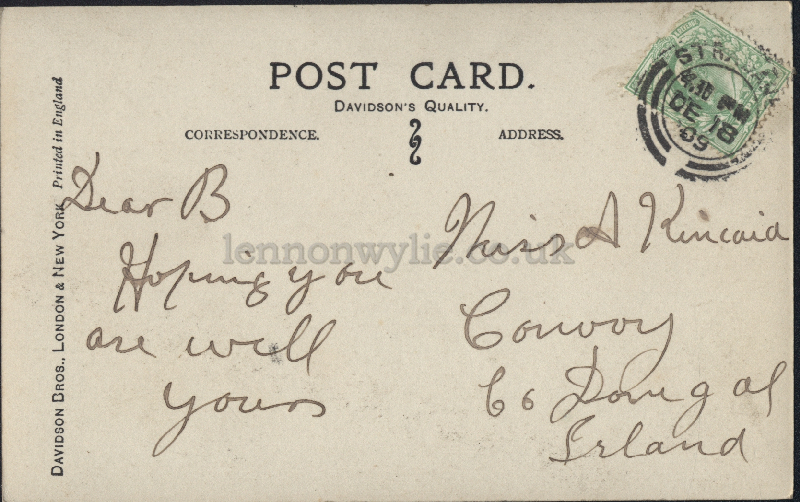 POST CARD.
DAVIDSON'S QUALITY.
CORRESPONDENCE.
ADDRESS.
DE 18
09
Dear B
Hoping you
are well
yours
Miss A Kincaid
Convoy
Co Donegal
Irland
DAVIDSON BROS., LONDON & NEW YORK. Printed in England
lennonwylie.co.uk